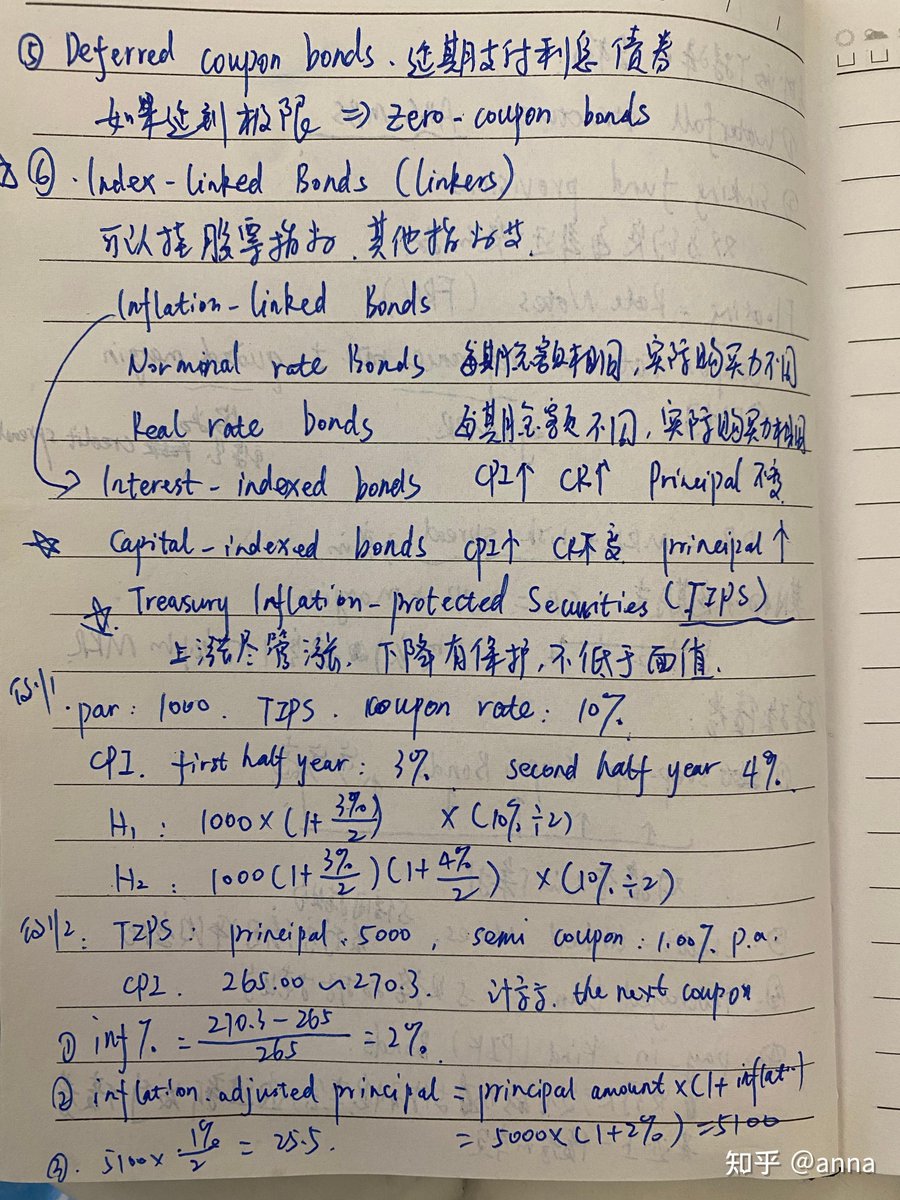 ⑤ Deferred coupon bonds. 延期支付利息债券
如果延到极限 ⇒ zero-coupon bonds
☆ ⑥ . Index-linked Bonds (linkers)
可以挂股票指数、其他指数等.
Inflation-linked Bonds
Norminal rate Bonds 每期金额相同,实际购买力不同
Real rate bonds 每期金额不同,实际购买力相同
Interest-indexed bonds CPI↑ CR↑ Principal 不变
☆ Capital-indexed bonds CPI↑ CR不变 principal↑
☆. Treasury Inflation-protected Securities (TIPS)
上涨尽管涨,下降有保护,不低于面值.
例1 . par: 1000. TIPS. coupon rate: 10%.
CPI. first half year: 3%. second half year 4%.
H₁: 1000×(1+3%/2) ×(10%÷2)
H₂: 1000(1+3%/2)(1+4%/2) ×(10%÷2)
例2: TIPS: principal. 5000, semi coupon: 1.00% p.a.
CPI. 265.00~270.3. 计算. the next coupon
① inf%. = 270.3-265/265 = 2%.
② inflation.adjusted principal = principal amount×(1+inflat.)
= 5000×(1+2%)=5100
③. 5100×1%/2 = 25.5.
知乎 @anna